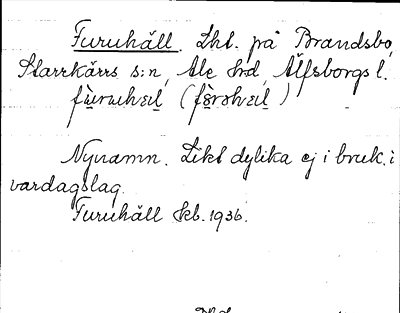 Furuhäll. Lht. på Brandsbo,
Starrkärrs s:n, Ale hd, Älfsborgs l.
Nynamn. Likt dylika ej i bruk i
vardagslag.
Furuhäll Jkb. 1936.